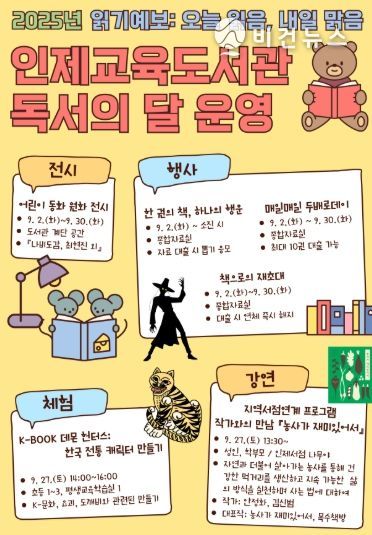 2025년 읽기예보: 오늘 읽음, 내일 맑음
비건뉴스
인제교육도서관
독서의 달 운영
전시
어린이 동화 원화 전시
9. 2.(화)~9. 30.(화)
도서관 계단 공간
『나비도감, 최현진 외』
행사
한 권의 책, 하나의 행운
9. 2.(화) ~ 소진 시
종합자료실
자료 대출 시 뽑기 응모
매일매일 두배로데이
9. 2.(화) ~ 9. 30.(화)
종합자료실
최대 10권 대출 가능
책으로의 재초대
9. 2.(화)~9. 30.(화)
종합자료실
대출 시 연체 즉시 해지
체험
K-BOOK 데몬 헌터스:
한국 전통 캐릭터 만들기
9. 27.(토) 14:00~16:00
초등 1~3, 평생교육학습실 1
K-문화, 요괴, 도깨비와 관련된 만들기
강연
지역서점연계 프로그램
작가와의 만남 『농사가 재미있어서』
9. 27.(토) 13:30~
성인, 학부모 / 인제서점 나무야
자연과 더불어 살아가는 농사를 통해 건
강한 먹거리를 생산하고 지속 가능한 삶
의 방식을 실천하며 사는 법에 대하여
작가: 안정화, 김신범
대표작: 농사가 재미있어서, 목수책방